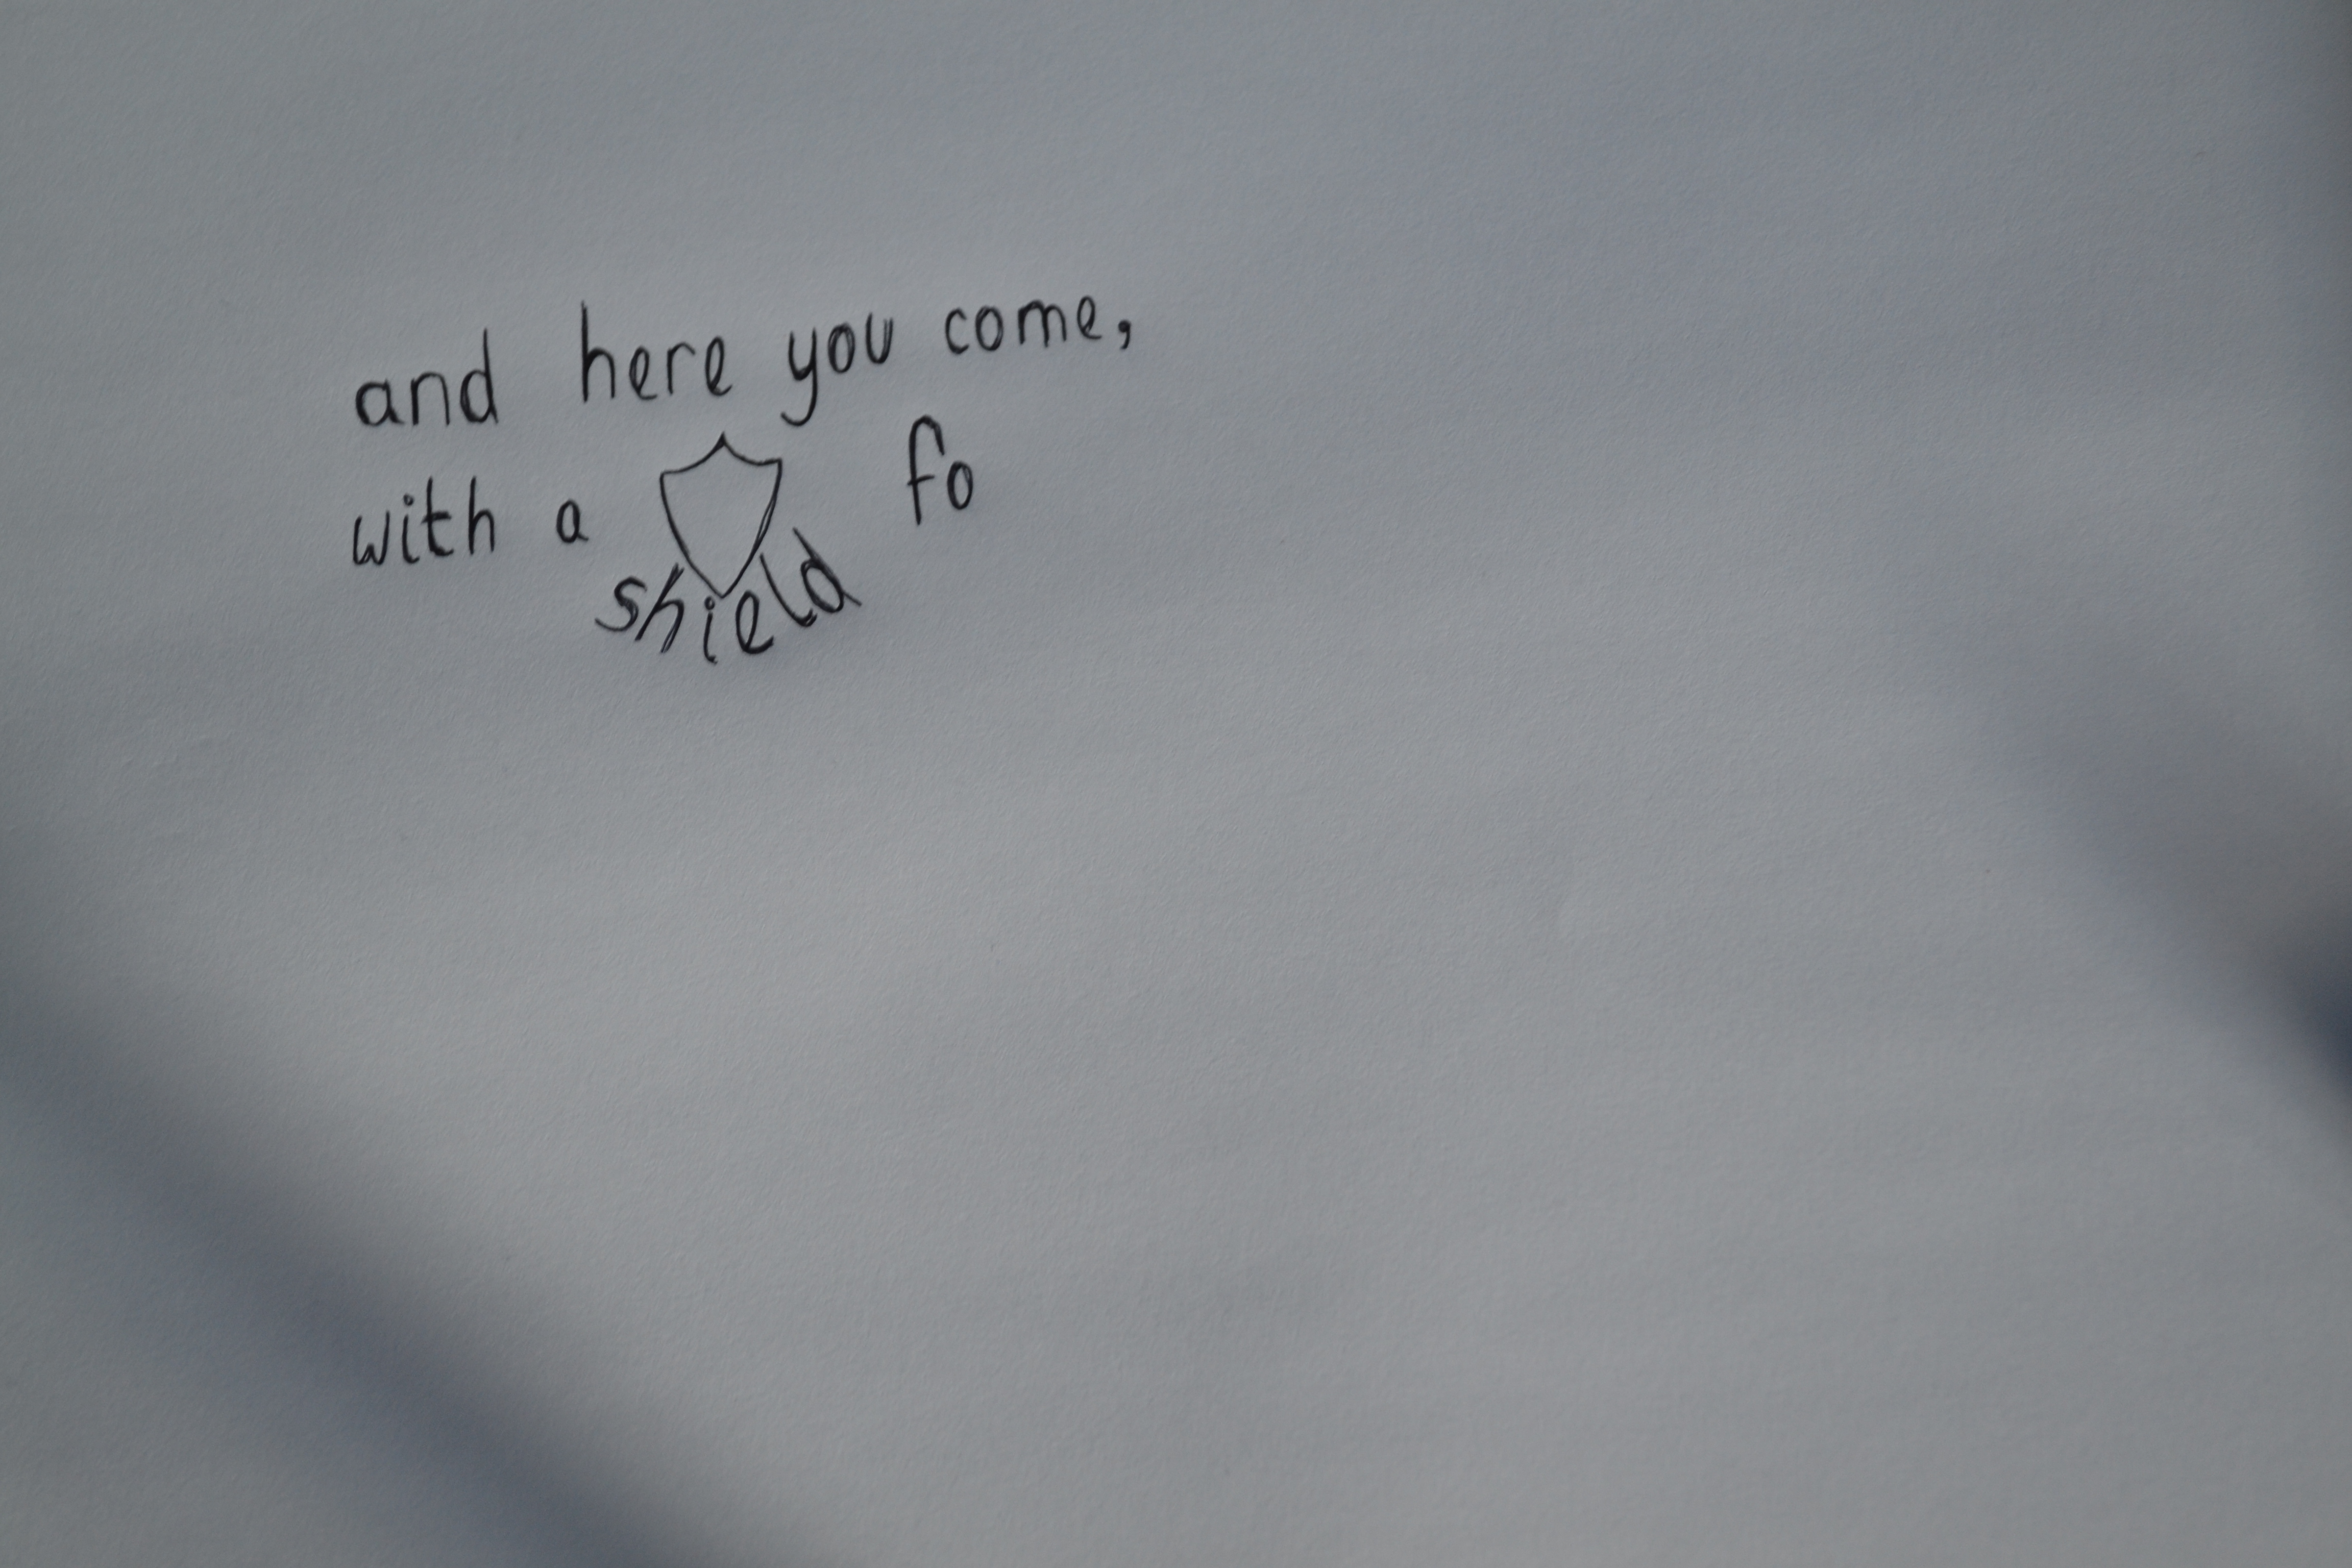 and here you come,
with a shield fo